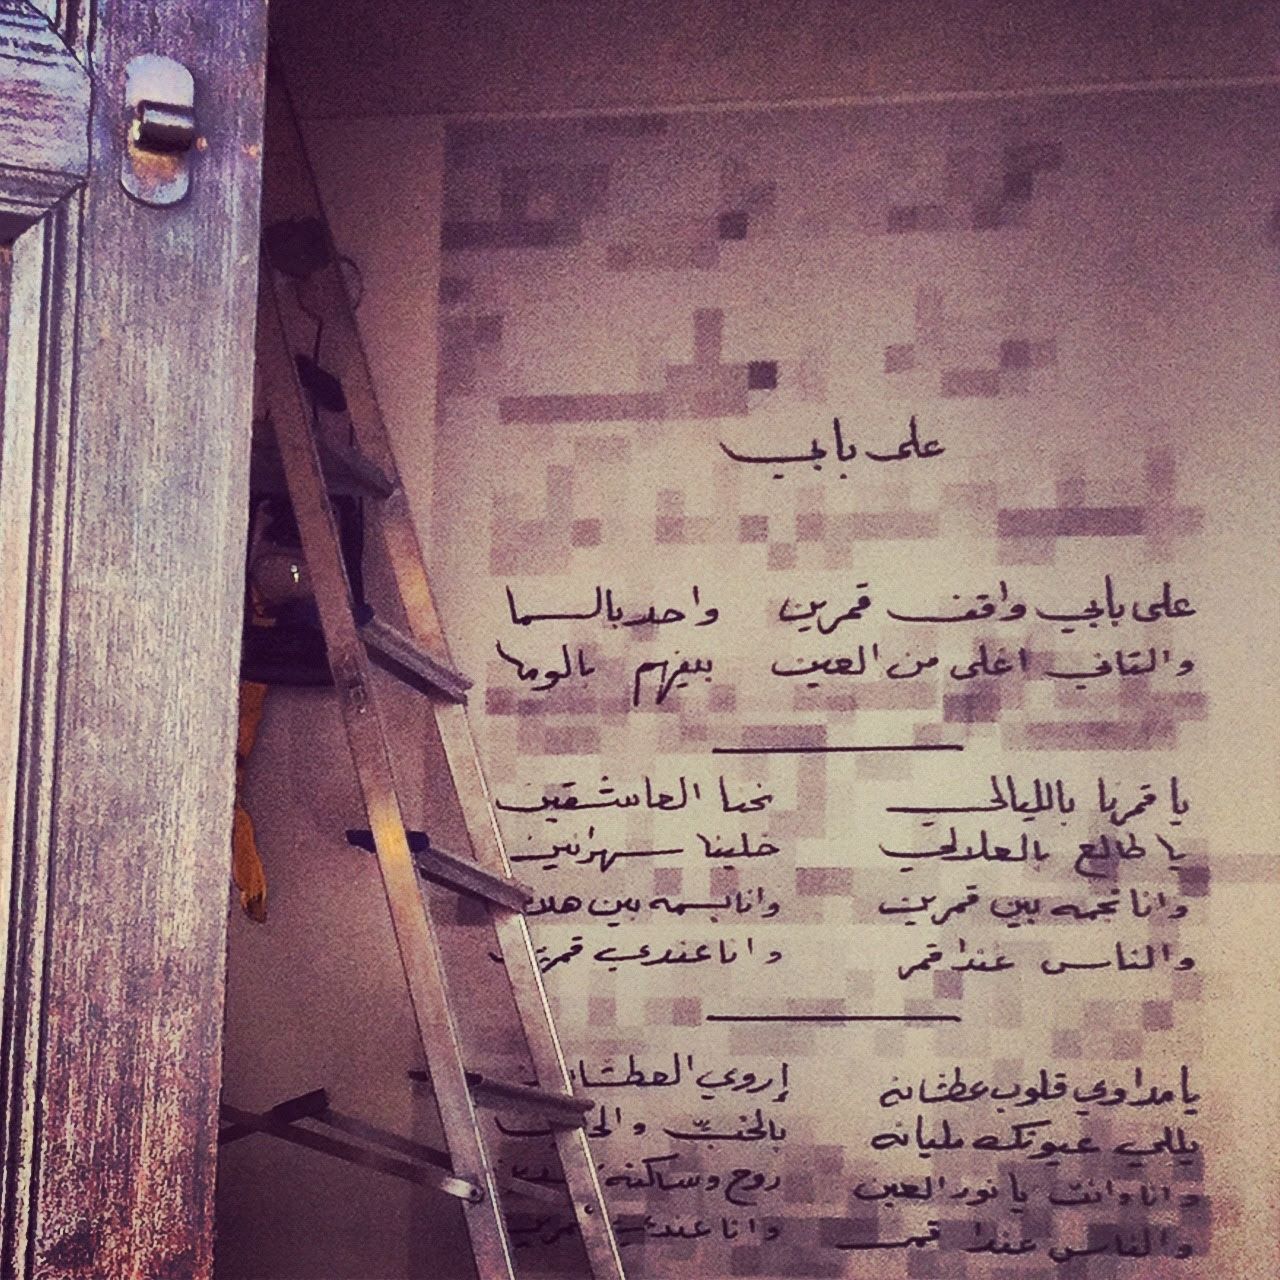 على بابي
على بابي واقف قمرين واحد بالسما
والتاني اغلى من العين بينهم بالوما
يا قمرنا بالليالي نحنا العاشقين
يا طالع بالعلالي خلينا سهرانين
وانا نجمه بين قمرين وانا بسمه بين
والناس عندا قمر وانا عندي
يا مداوي قلوب عطشانه إروي
يللي عيونك مليانه بالحبّ
وانا وانت يا نور العين روح وساكنه
والناس عندا قمر وانا عندي